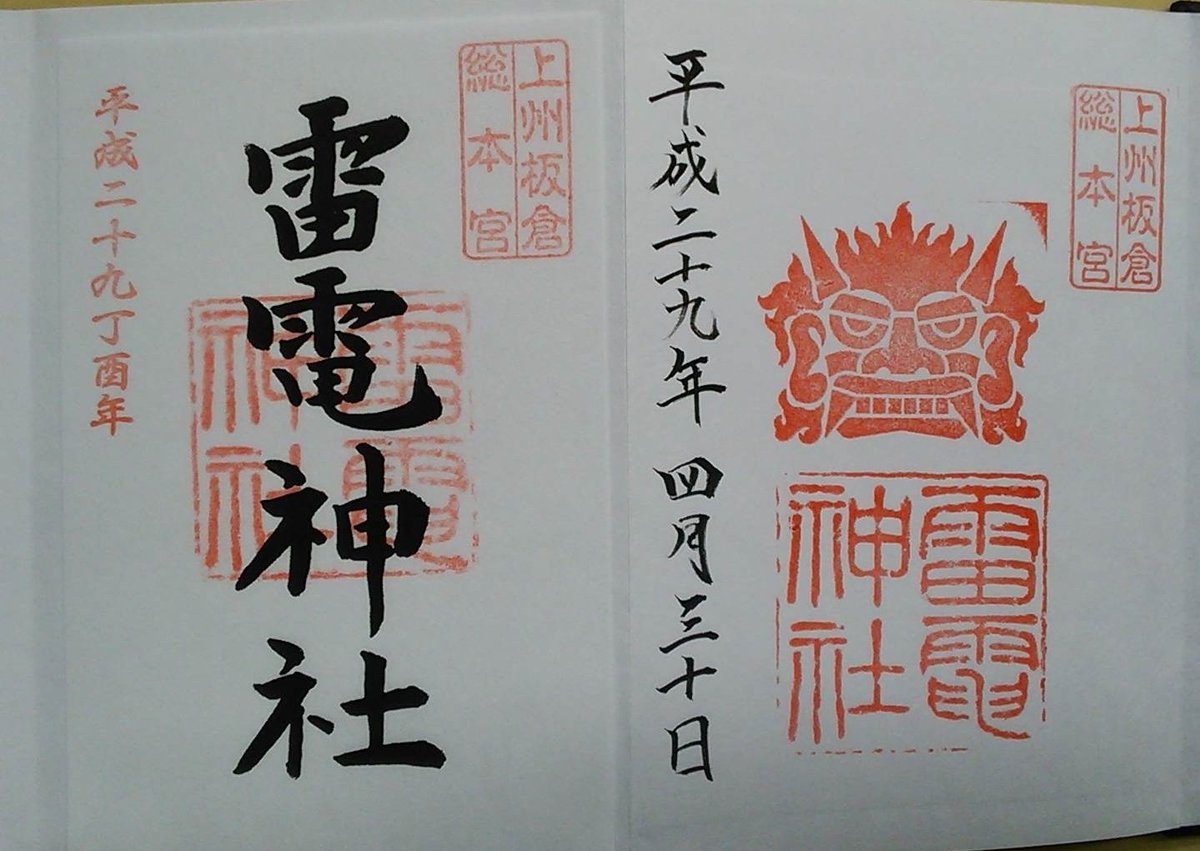 上州板倉
総本宮
雷電
神社
平成二十九年 四月三十日
上州板倉
総本宮
雷電神社
雷電
神社
平成二十九丁酉年